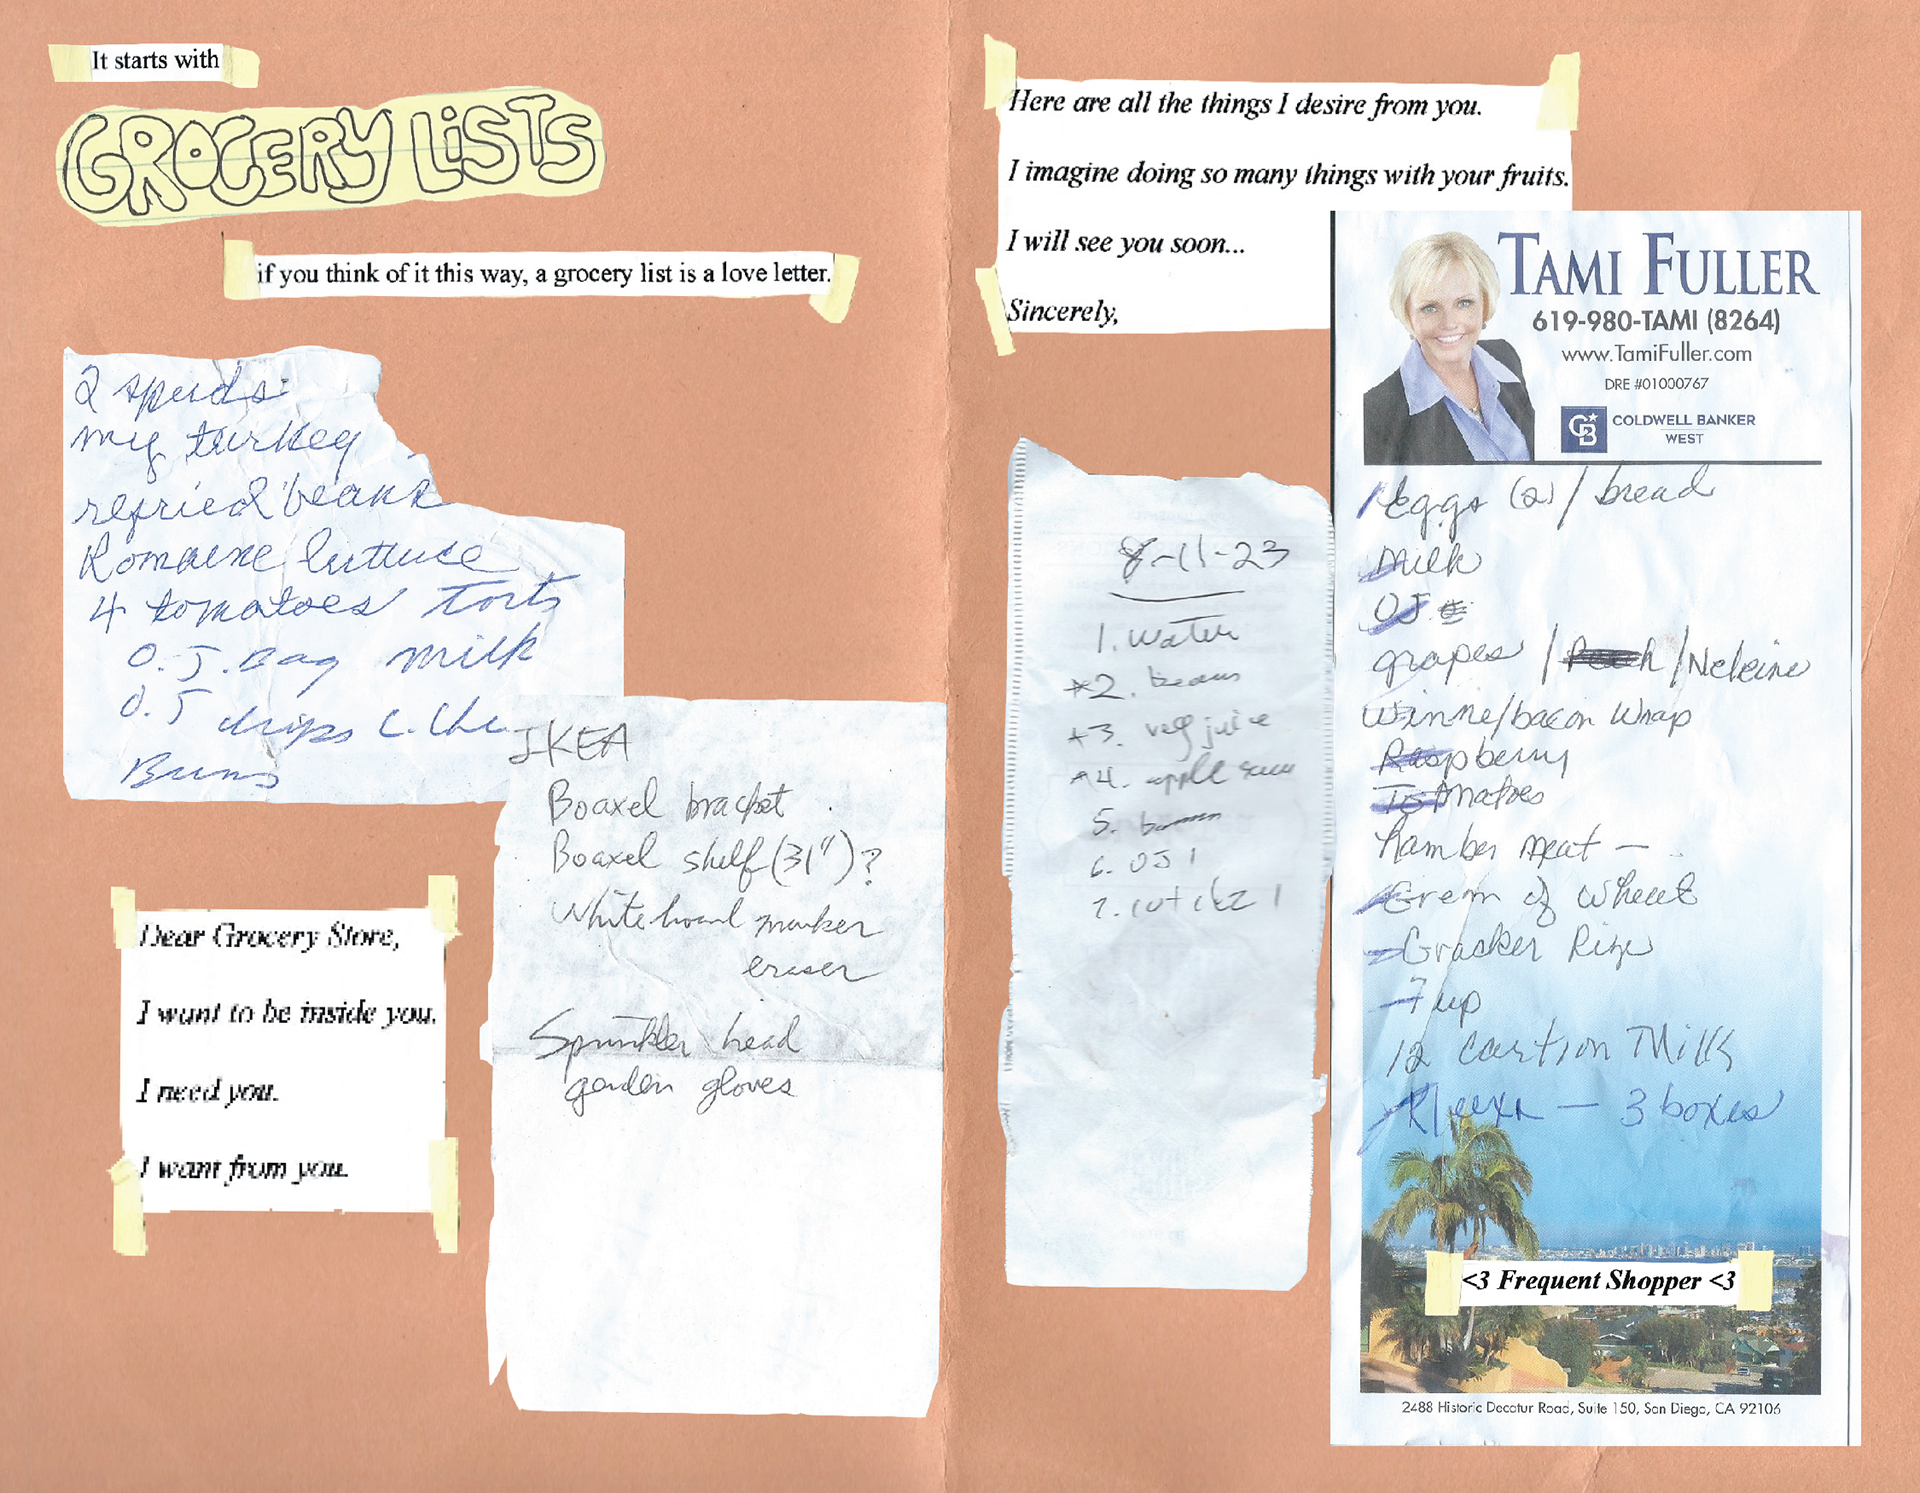 It starts with
GROCERY LISTS
if you think of it this way, a grocery list is a love letter.
2 spuds
my turkey
refried beans
Romaine luttuce
4 tomatoes Torts
O.J. Bag milk
O.J chips C. Che
Buns
Dear Grocery Store,
I want to be inside you.
I need you.
I want from you.
IKEA
Boaxel bracket
Boaxel shelf (31")?
White board marker
eraser
Sprinkler head
garden gloves
Here are all the things I desire from you.
I imagine doing so many things with your fruits.
I will see you soon...
Sincerely,
8-11-23
1. water
*2. beans
*3. veg juice
*4. apple
5.
6. OJ 1
7.
TAMI FULLER
619-980-TAMI (8264)
www.TamiFuller.com
DRE #01000767
CB
COLDWELL BANKER
WEST
Eggs (2) / bread
Milk
OJ
grapes / / Nektine
Winne/bacon Wrap
Raspberry
Tomatoes
hamber meat —
Crem of Wheat
Cracker Ritz
7 up
12 cartion Milk
Kleexn — 3 boxes
<3 Frequent Shopper <3
2488 Historic Decatur Road, Suite 150, San Diego, CA 92106